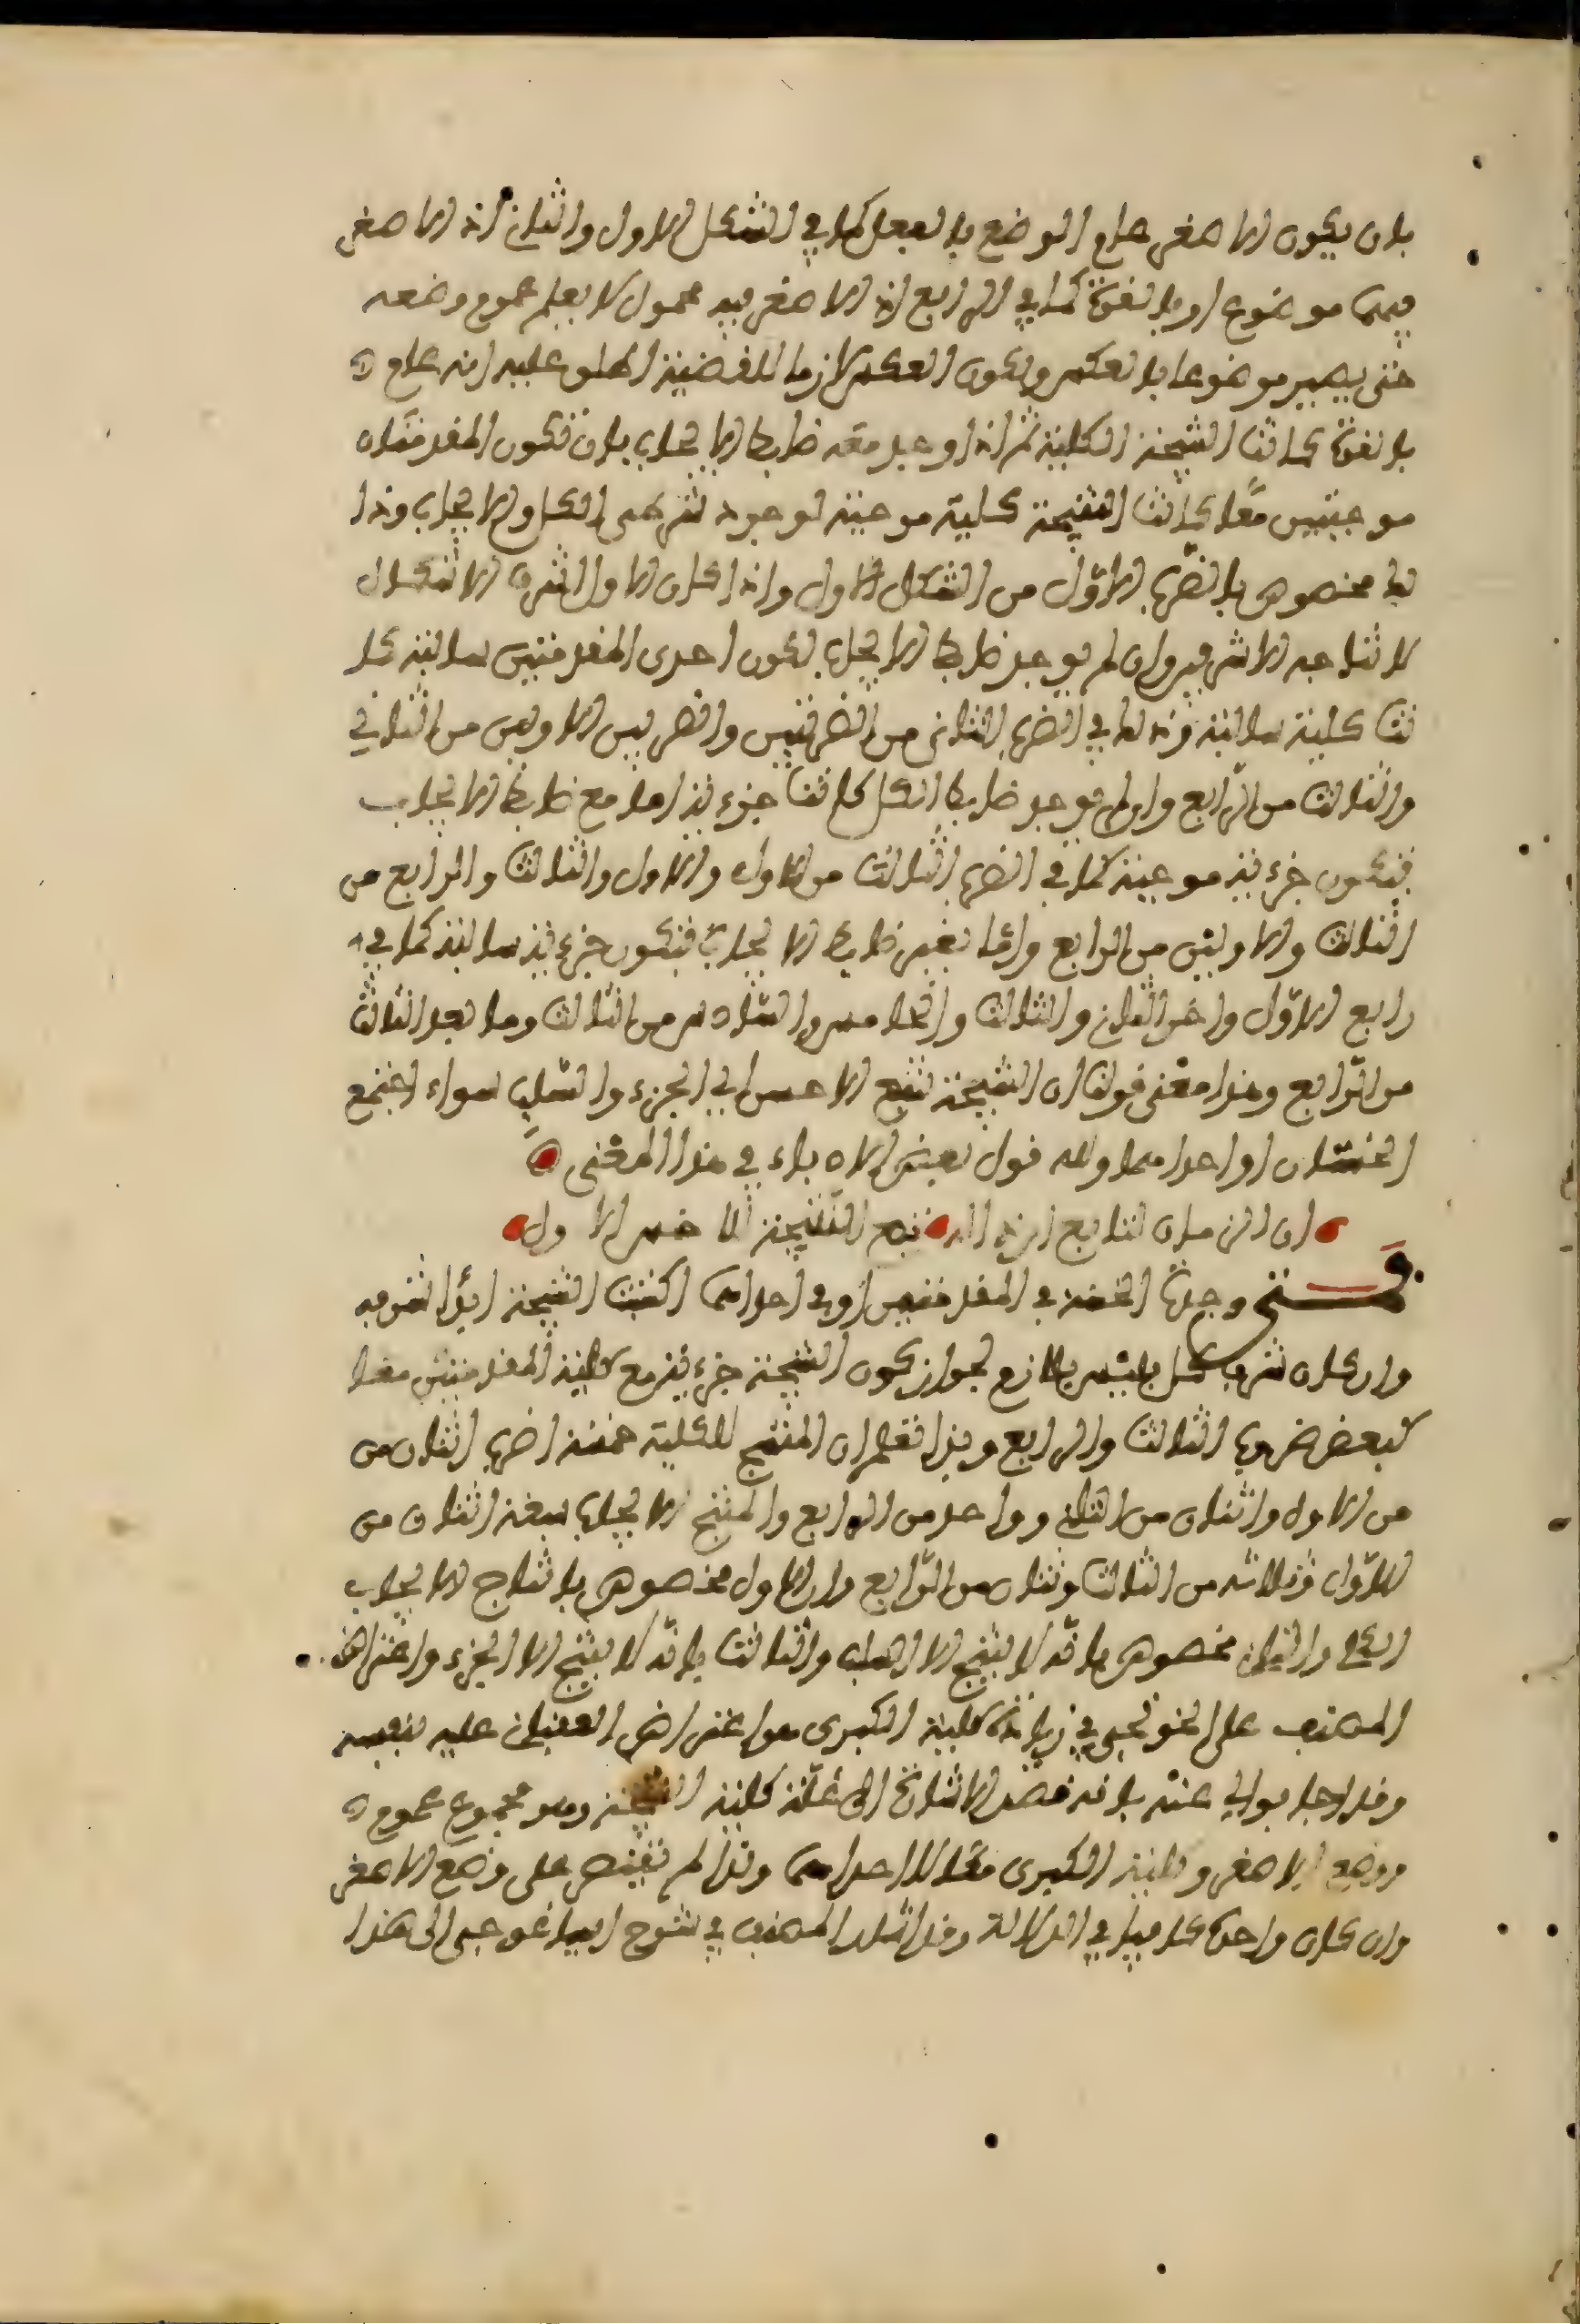 بان يكون الاصغر عام الوضع بالفعل كما في الشكل الاول والثاني اذ الاصغر
فيهما موضوع او بالقوة كما في الرابع اذ الاصغر فيه محمول لا يعلم عموم وضعه
حتى يصير موضوعا بالعكس ويكون العكس لازما للقضية المطلق عليه انه عام
بالقوة كانت النتيجة الكلية ثم اذا وجد معه ضابط الايجاب بان تكون المقدمتان
موجبتين معا كانت النتيجة كلية موجبة لوجود شرطى الكل والايجاب وذا
لط مخصوص بالضرب الاول من الشكل الاول واذا كان الاول اشرف الاشكال
لانتاجه الاشرفين وان لم يوجد ضابط الايجاب لكون احدى المقدمتين سالبة كا
نت كلية سالبة وذلط في الضرب الثاني من الضربين والضربين الاولين من الثاني
والثالث من الرابع وان لم يوجد ضابط الكل كانت جزءية اما مع ضابط الايجاب
فتكون جزءية موجبة كما في الضرب الثالث من الاول والاول والثالث والرابع من
الثالث والاولين من الرابع واما بغير ضابط الايجاب فتكون جزءية سالبة كما في
رابع الاول واخر الثاني والثالث والخامس والسادس من الثالث وما بعد الثالث
من الرابع وهذا معنى قولنا ان النتيجة تتبع الاخس اي الجزء والسلب سواء اجتمع
الخستان او احداهما ولله قول بعض الادباء في هذا المعنى
ان الزمان لتابع انذاله تبع النتيجة للاخس الاول
فمتى وجدت الخسة في المقدمتين او في احداهما اكتست النتيجة ايذا الشرف
وان كان شرف كل بليس بلازم لجواز كون النتيجة جزءية مع كلية المقدمتين معا
كبعض ضروب الثالث والرابع وبذا تعلم ان المنتج للكلية خمسة اضرب اثنان من
من الاول واثنان من الثاني وواحد من الرابع والمنتج الايجاب سبعة اثنان من
الاول وثلاثة من الثالث وثنان من الرابع وان الاول مخصوص بانتاج الايجاب
الكلي والثاني مخصوص بانه لا ينتج الا السلب والثالث بانه لا ينتج الا الجزء واعتراض
المصنف على الخونجي في زيادة كلية الكبرى هو اعتراض العقباني عليه بنفسه
وقد اجابوا لي عنه بانه قصد الاشارة الى علة كلية النتيجة وهو مجموع عموم
موضع الاصغر وكلية الكبرى معا لا احداهما ولذا لم يقتصر على وضع الاصغر
وان كان واحدة كافيا في الدلالة وقد اشار المصنف في شرح ايساغوجى الى هذا